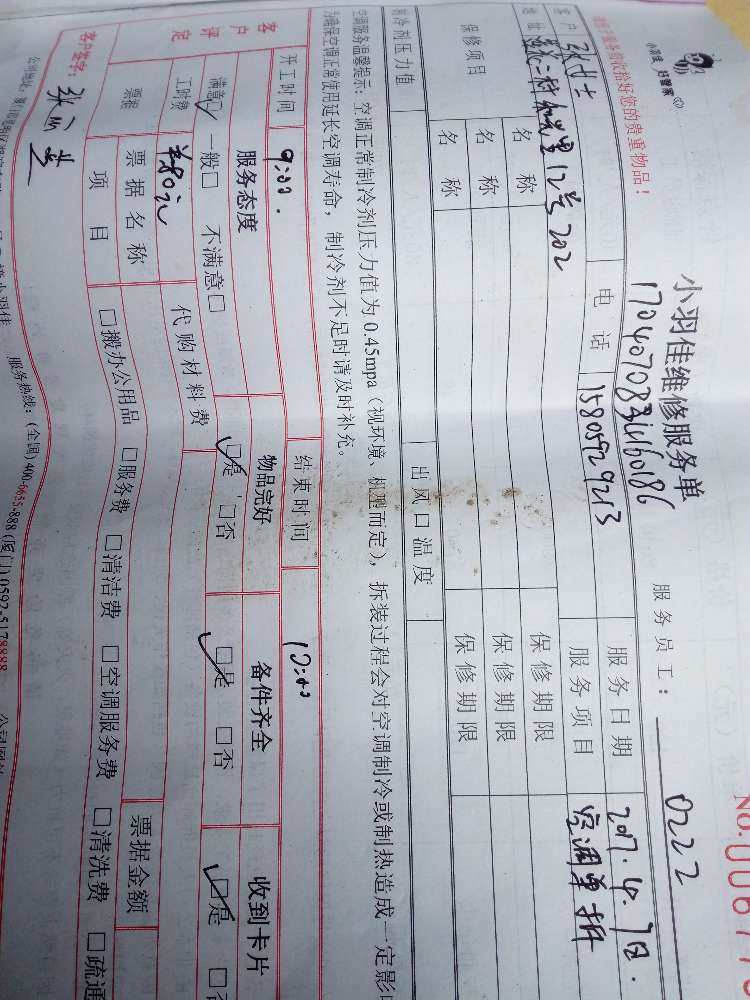 小羽佳 好管家
贵重物品！
小羽佳维修服务单
No.0067
17040708344160186
服务员工： 0222
客户 张女士 电话 15805929213 服务日期 2017.4.9日.
地址 12号202 服务项目 空调单拆
保修项目 名称 保修期限
名称 保修期限
名称 保修期限
制冷剂压力值 出风口温度
空调服务温馨提示：空调正常制冷剂压力值为0.45mpa（视环境、机型而定），拆装过程会对空调制冷或制热造成一定影
为确保空调正常使用延长空调寿命，制冷剂不足时请及时补充。
开工时间 9:00. 结束时间 10:00
客户评定 服务态度 物品完好 备件齐全 收到卡片
满意☑ 一般□ 不满意□ ☑是 □否 ☑是 □否 ☑是 □
工时费 羊80元 代购材料费
票据 票据名称 票据金额
项目 □搬办公用品 □服务费 □清洁费 □空调服务费 □清洗费 □疏通
客户签字：张
服务热线：(全国)400-6655-888 (厦门)0592-5178888